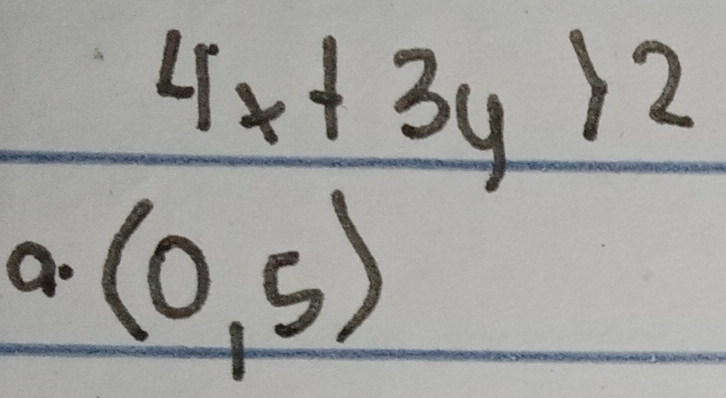 4x + 3y > 2
a. (0,5)